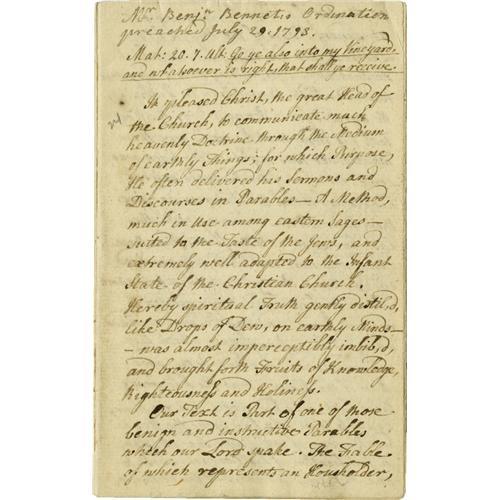 Mr. Benjn. Bennets Ordination
preached July 29. 1793.
Mat: 20. 7. Ult. Go ye also into my Vineyard,
and whatsoever is right, that shall ye receive.
It pleased Christ, the great Head of
the Church, to communicate much
heavenly Doctrine through the Medium
of earthly Things; for which Purpose,
He often delivered his Sermons and
Discourses in Parables — A Method,
much in Use among eastern Sages —
suited to the Taste of the Jews, and
extremely well adapted to the Infant
State of the Christian Church.
Hereby spiritual Truth gently distil,d,
like Drops of Dew, on earthly Minds —
— was almost imperceptibly imbib,d,
and brought forth Fruits of Knowledge,
Righteousness and Holiness.
Our Text is Part of one of those
benign and instructive Parables
which our Lord spake. The Fable
of which represents an Housholder,